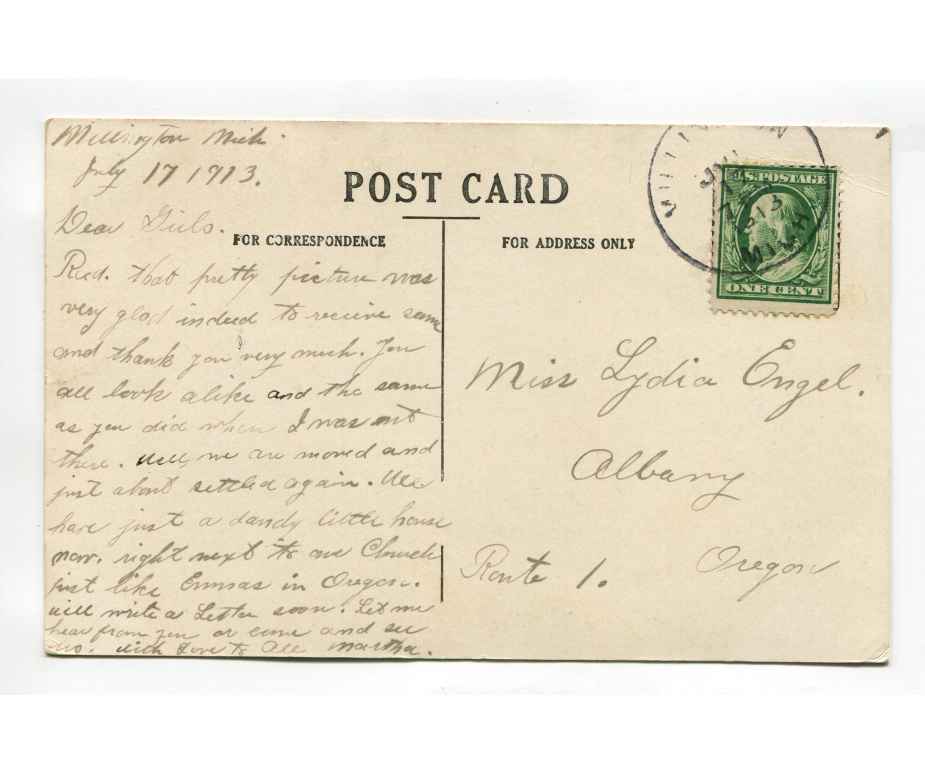 Millington Mich.
July 17 1913.
POST CARD
Dear Girls.
FOR CORRESPONDENCE
FOR ADDRESS ONLY
Recd. that pretty picture was
very glad indeed to receive same
and thank you very much. You
all look alike and the same
as you did when I was out
there. Well, we are moved and
just about settled again. We
have just a dandy little house
now. right next to our Church
just like Emmas in Oregon.
will write a Letter soon. Let me
hear from you or come and see
us. with Love to All Martha.
MILLINGTON
JUL
17
1913
MICH
U.S. POSTAGE
ONE CENT
Miss Lydia Engel.
Albany
Route 1. Oregon